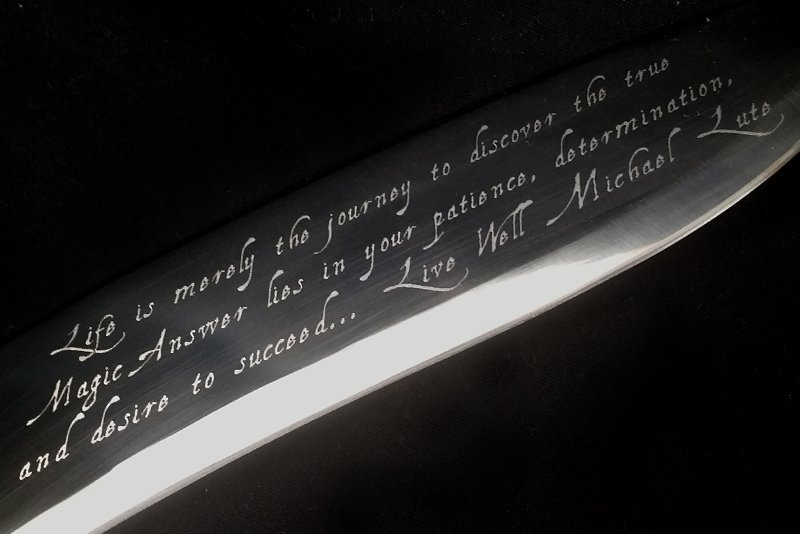 Life is merely the journey to discover the true
Magic Answer lies in your patience, determination,
and desire to succeed... Live Well Michael Lute